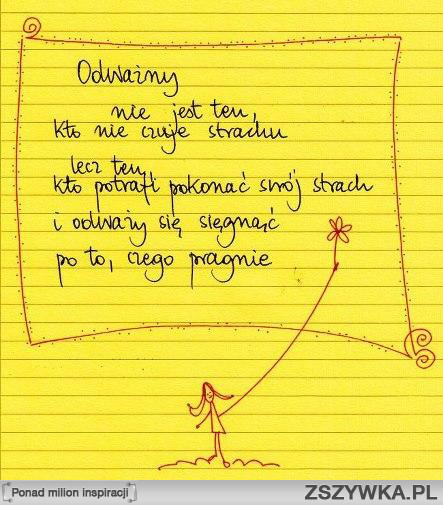 Odważny
nie jest ten,
kto nie czuje strachu
lecz ten,
kto potrafi pokonać swój strach
i odważy się sięgnąć
po to, czego pragnie
Ponad milion inspiracji
ZSZYWKA.PL